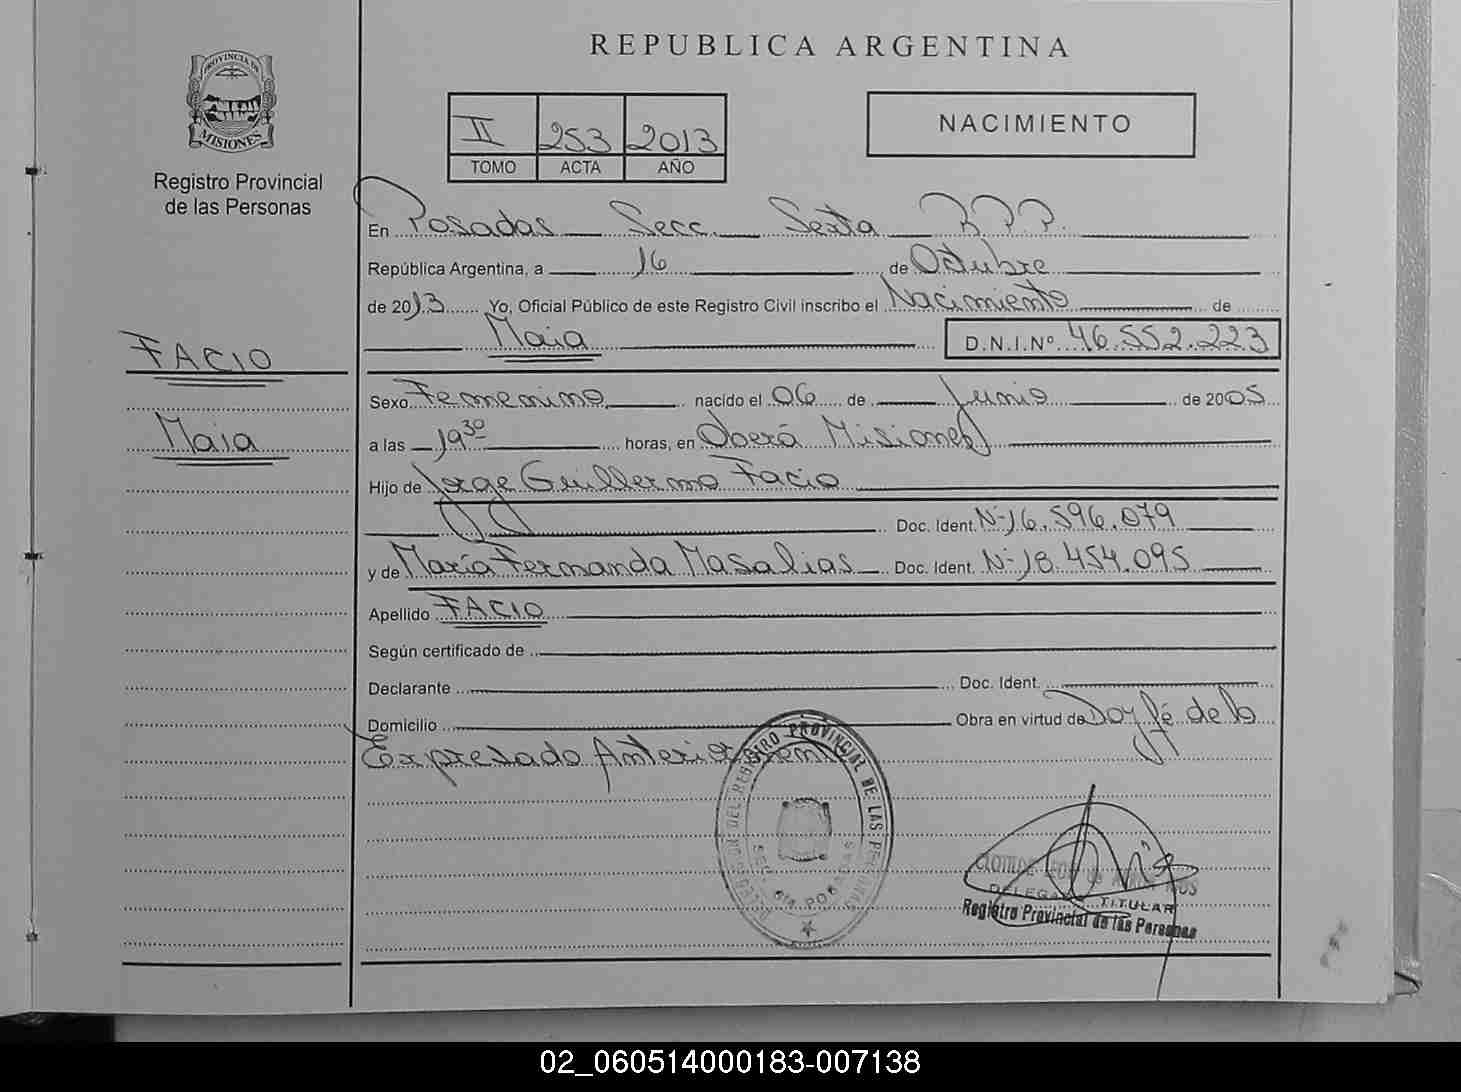 REPUBLICA ARGENTINA
PROVINCIA DE
MISIONES
Registro Provincial
de las Personas
II 253 2013
TOMO ACTA AÑO
NACIMIENTO
En Posadas Secc. Sexta R.P.P.
República Argentina, a 16 de Octubre
de 2013 Yo, Oficial Público de este Registro Civil inscribo el Nacimiento de
Maia D.N.I.Nº 46.552.223
FACIO
Maia
Sexo Femenino nacido el 06 de Junio de 2005
a las 19 30 horas, en Oberá Misiones
Hijo de Jorge Guillermo Facio
Doc. Ident. Nº 16.596.079
y de María Fernanda Masalias Doc. Ident. Nº 18.454.095
Apellido FACIO
Según certificado de
Declarante Doc. Ident.
Domicilio Obra en virtud de Doy fé de lo
Expresado Anteriormente
DELEGACION DEL REGISTRO PROVINCIAL DE LAS PERSONAS
SECC. 6ta. POSADAS
CLOTILDE
DELEGADA TITULAR
Registro Provincial de las Personas
02_060514000183-007138